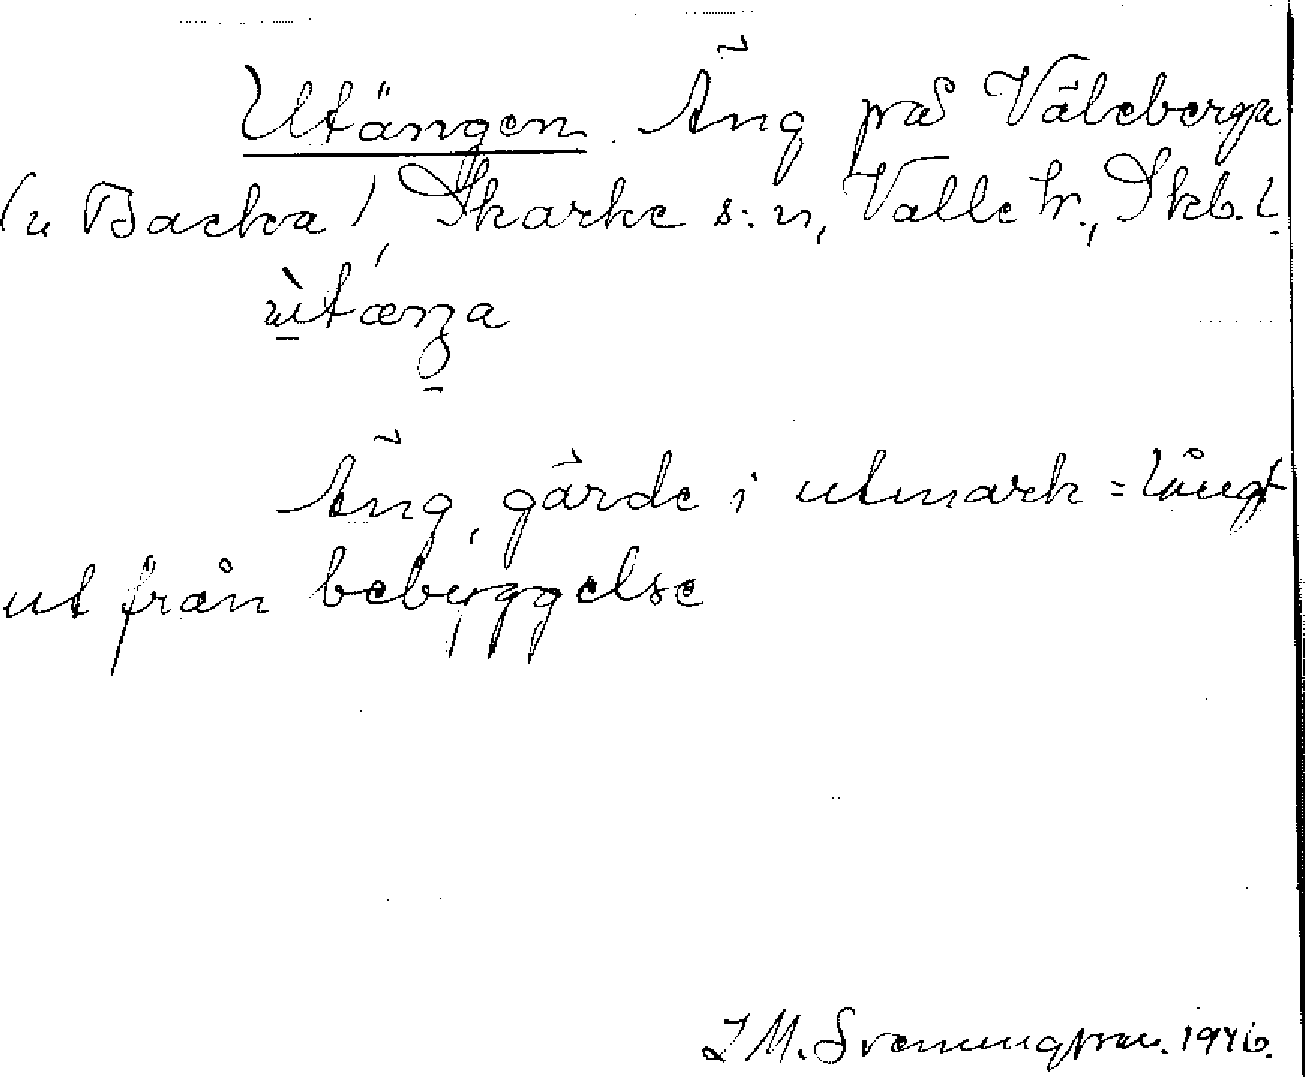 Utängen. Äng på Väleberga
(u Backa), Skarke s:n, Valle hr., Skb.l.
Äng, gärde i utmark = långt
ut från bebyggelse
J M. Svenningson. 1946.